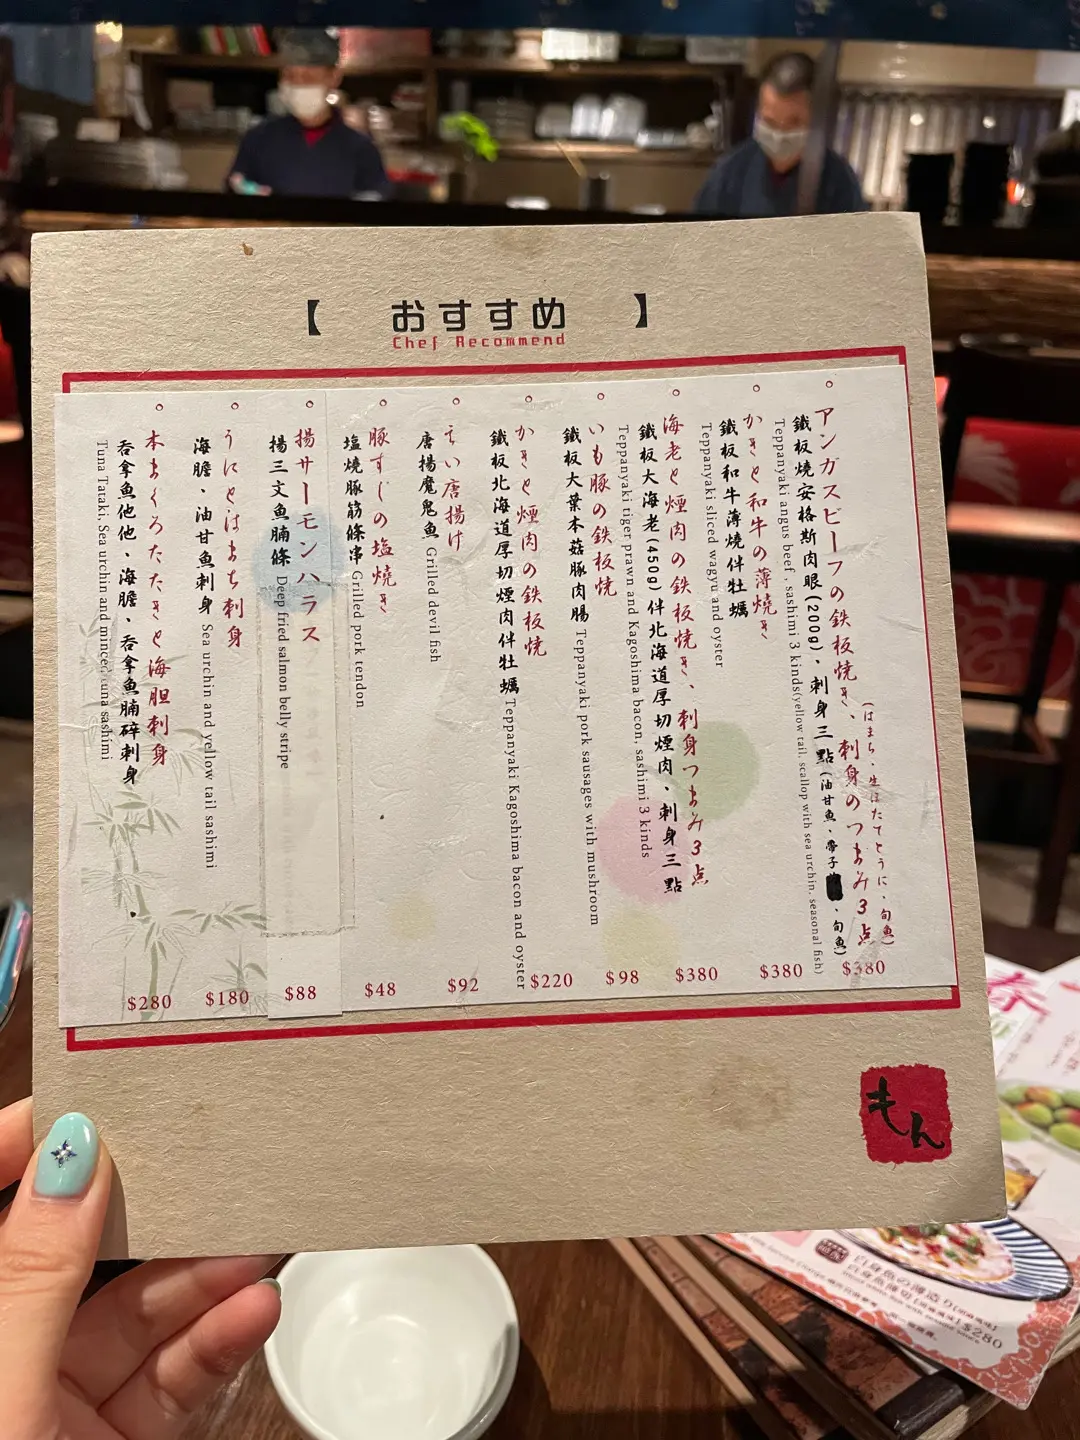 【 おすすめ 】
Chef Recommend
アンガスビーフの鉄板焼き、刺身のつまみ3点
(はまち、生ほたてとうに、旬魚)
鐵板燒安格斯肉眼(200g)、刺身三點(油甘魚、帶子、旬魚)
Teppanyaki angus beef, sashimi 3 kinds(yellow tail, scallop with sea urchin, seasonal fish)
$380
かきと和牛の薄焼き
鐵板和牛薄燒伴牡蠣
Teppanyaki sliced wagyu and oyster
$380
海老と煙肉の鉄板焼き、刺身つまみ3点
鐵板大海老(450g)伴北海道厚切煙肉、刺身三點
Teppanyaki tiger prawn and Kagoshima bacon, sashimi 3 kinds
$380
いも豚の鉄板焼
鐵板大葉本菇豚肉腸 Teppanyaki pork sausages with mushroom
$98
かきと煙肉の鉄板焼
鐵板北海道厚切煙肉伴牡蠣 Teppanyaki Kagoshima bacon and oyster
$220
えい唐揚け
唐揚魔鬼魚 Grilled devil fish
$92
豚すじの塩焼き
塩燒豚筋條串 Grilled pork tendon
$48
揚サーモンハラス
揚三文魚腩條 Deep fried salmon belly stripe
$88
うにとはまち刺身
海膽、油甘魚刺身 Sea urchin and yellow tail sashimi
$180
本まぐろたたきと海胆刺身
呑拿魚他他、海膽、呑拿魚腩碎刺身
Tuna Tataki, Sea urchin and minced tuna sashimi
$280
もん
白身魚の薄造り
$280